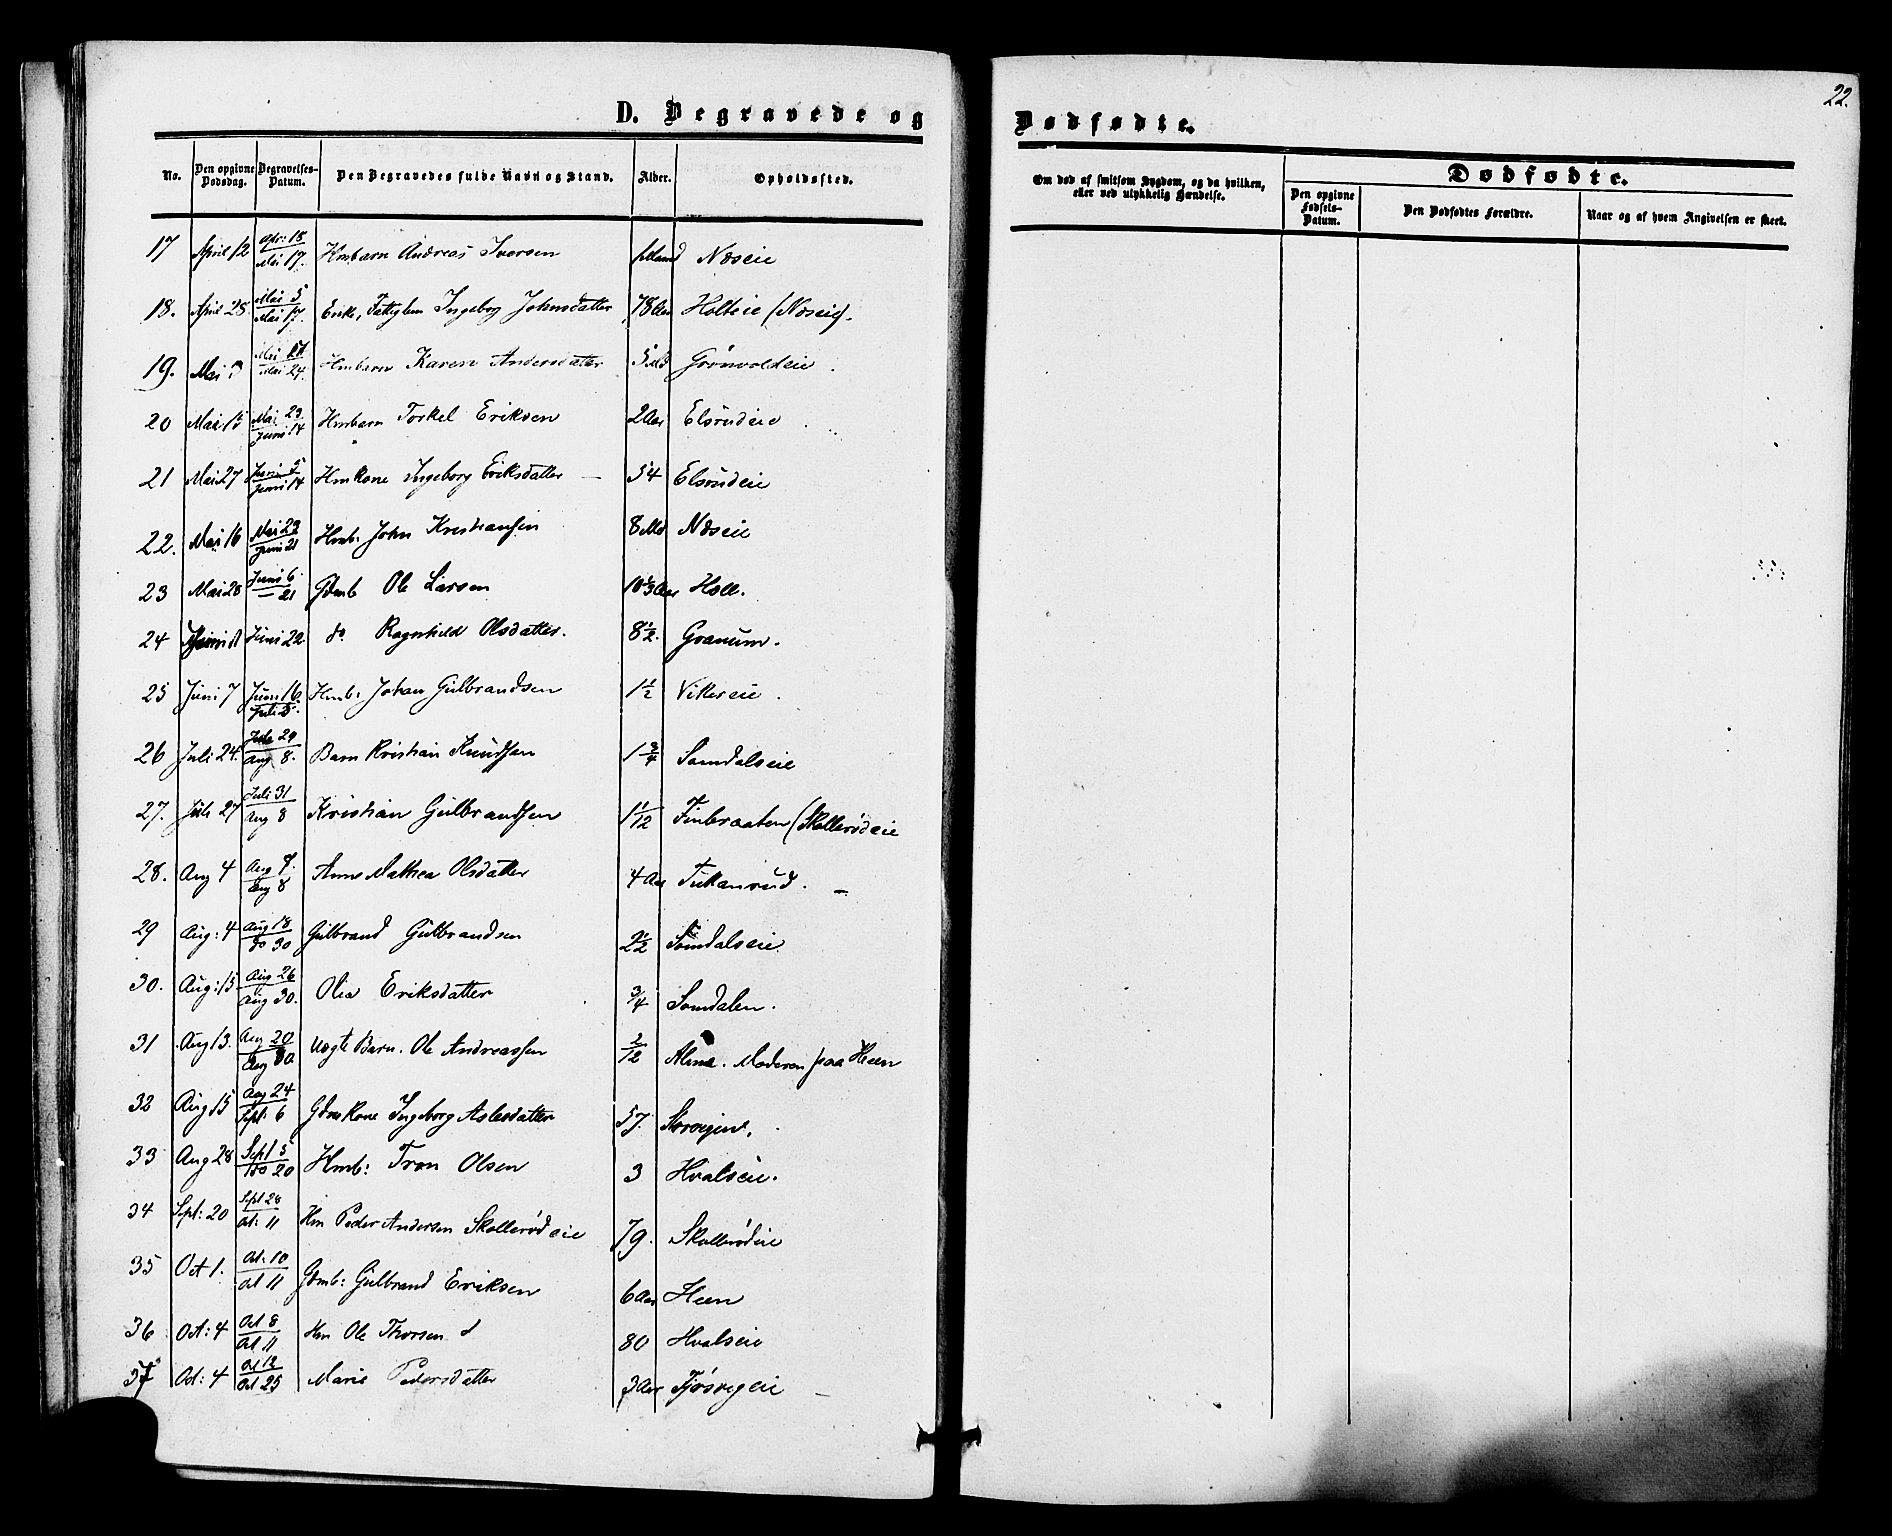 22.
D. Begravede og Dødfødte.
No. Den opgivne Dødsdag. Begravelses-Datum. Den Begravedes fulde Navn og Stand. Alder. Opholdssted. Om død af smitsom Sygdom, og da hvilken, eller ved ulykkelig Hændelse. Dødfødte.
Den opgivne Fødsels-Datum. Den Dødfødtes Forældre. Naar og af hvem Angivelsen er skeet.
17 April 12 Apr: 18 Mai 17. Hmbarn Andreas Iversen 1 Næseie
18. April 28 Mai 5 Mai 17. Enke, Ingeborg Johnsdatter 78 Aar Holteie (Næseie).
19. Mai Mai 24. Hmbarn Karen Andersdatter 5 Md Grönvoldeie
20 Mai 15 Mai 23. Juni 14 Hmbarn Torkel Eriksen 2 Aar Elsrudeie
21 Mai 27 Juni 5 Juni 14 Hmkone Ingeborg Eriksdatter 54 Elsrudeie
22. Mai 16 Mai 23 Juni 21 Hmb: John Kristiansen 8 Md Næseie
23 Mai 28 Juni 6 – 21 Gdmb Ole Larsen 10 Aar Holl.
24 Juni 22 do Ragnhild Olsdatter. 8 1/2. Granum.
25 Juni 7 Juni 16 Juli 5. Hmb: Johan Gulbrandsen 1 1/2 Vikereie.
26 Juli 24. Juli 29 Aug 8. Barn Kristian Knudsen 1 3/4 Somdalseie
27. Juli 27 Juli 31 Aug 8 Kristian Gulbrandsen 1 1/12 Finbraaten (Skollerödeie
28. Aug 4 Aug 7. Aug 8 Anne Mathea Olsdatter 4 Aar Tukanrud. –
29 Aug: 4 Aug 18 do 30 Gulbrand Gulbrandsen 2 1/2 Somdalseie
30. Aug: 15 Aug 26 Aug 30. Olia Eriksdatter 3/4 Somdalen.
31 Aug 13. Aug 20 Aug 30 Uægte Barn. Ole Andreassen 2/12 Alme. Moderen paa Heen
32 Aug 15 Aug 24 Sept: 6 Gdmkone Ingeborg Aslesdatter 57. Skovigen.
33 Aug 28 Sept 5 do 20 Hmb: Tron Olsen 3 Hvalseie.
34 Sept: 20 Sept 28 Oct: 11 Hm Peder Andersen Skollerödeie 79. Skollerödeie
35 Oct 1. Oct: 10 Oct 11 Gdmb: Gulbrand Eriksen 6 Aar Heen
36 Oct: 4 Oct 8 Oct 11 Hm Ole Thorsen 80 Hvalseie
37 Oct: 4 Oct 12 Oct 25 Marie Pedersdatter 3 Aar Tjösvigeie –